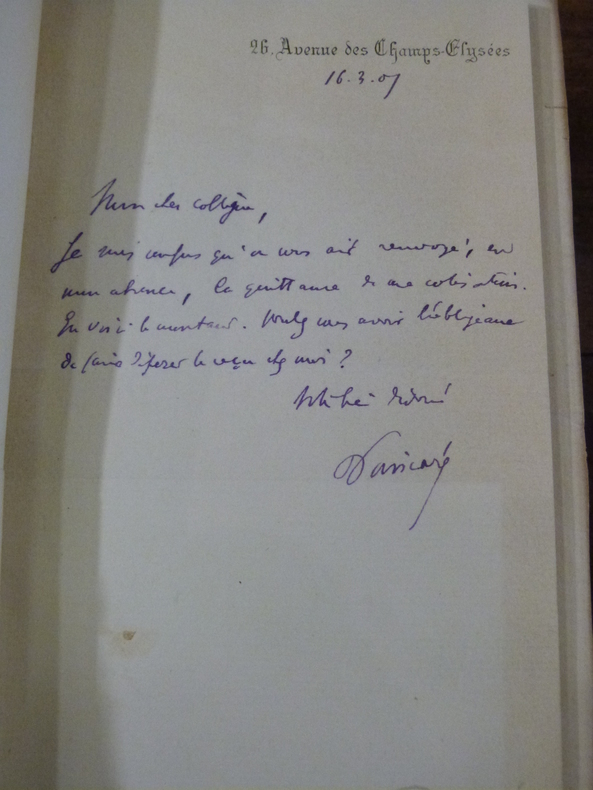 26, Avenue des Champs-Elysées
16.3.07
Mon cher collègue,
Je suis confus qu'on vous ait renvoyé, en
mon absence, la quittance de ma cotisation.
En voici le montant. Voulez vous avoir l'obligeance
de faire déposer le reçu chez moi ?
Votre bien dévoué
Poincaré